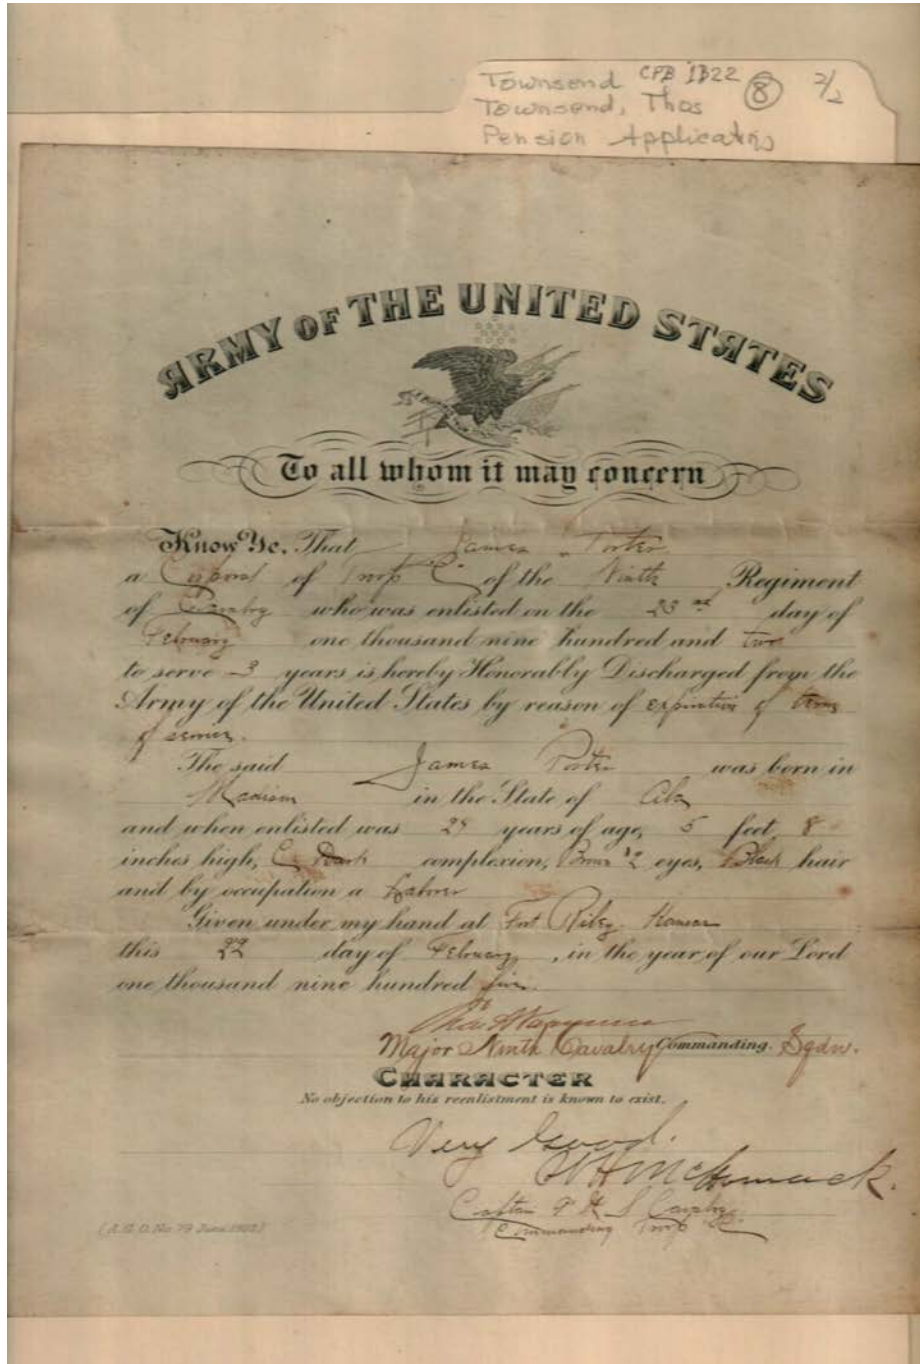 Townsend CPB 1B22 ⑧ 2/2
Townsend, Thos
Pension Applications
ARMY OF THE UNITED STATES
To all whom it may concern
Know Ye, That James Porter
a Corporal of Troop "C" of the Ninth Regiment
of Cavalry who was enlisted on the 23rd day of
February one thousand nine hundred and two
to serve 3 years is hereby Honorably Discharged from the
Army of the United States by reason of expiration of term
of service.
The said James Porter was born in
Madison in the State of Ala
and when enlisted was years of age, 5 feet, 8
inches high, Dark complexion, eyes, Black hair
and by occupation a Laborer
Given under my hand at Fort Riley Kansas
this 22 day of February, in the year of our Lord
one thousand nine hundred five.
Major Ninth Cavalry Commanding. Sqdn.
CHARACTER
No objection to his reenlistment is known to exist.
Very Good.
McCormack.
Captain 9th U S Cavalry
Commanding Troop "C"
(A.G.O. No. 79 June, 1902.)